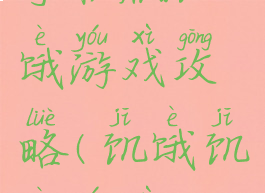 è yóu xì gōng
饿游戏攻
lüè jī è jī
略(饥饿饥